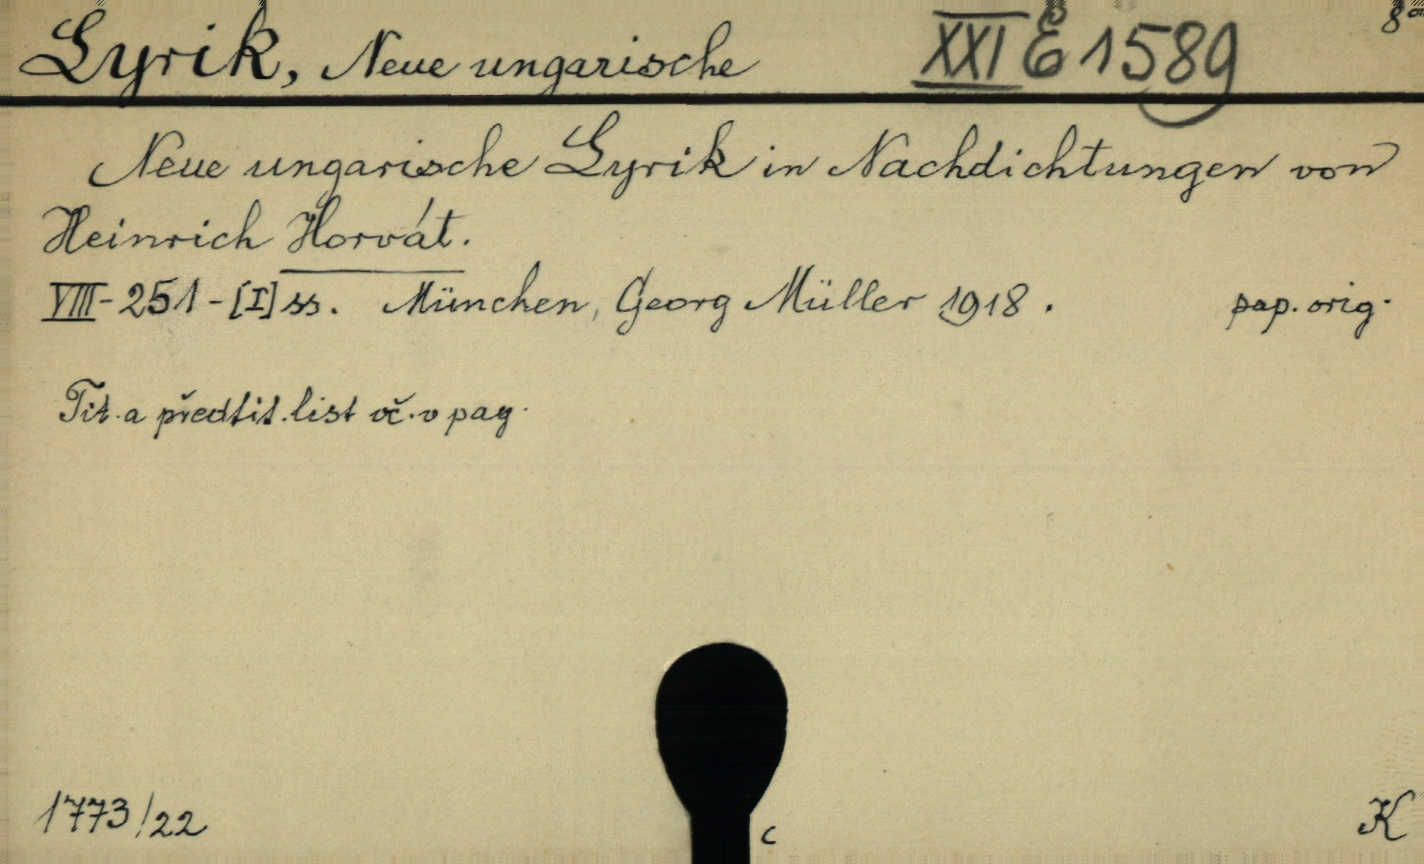 Lyrik, Neue ungarische XXI E 1589 8°
Neue ungarische Lyrik in Nachdichtungen von
Heinrich Horvát.
VIII-251-[I] ss. München, Georg Müller 1918. pap. orig.
Tit. a předtit. list vč. v pag.
1773/22
c
K